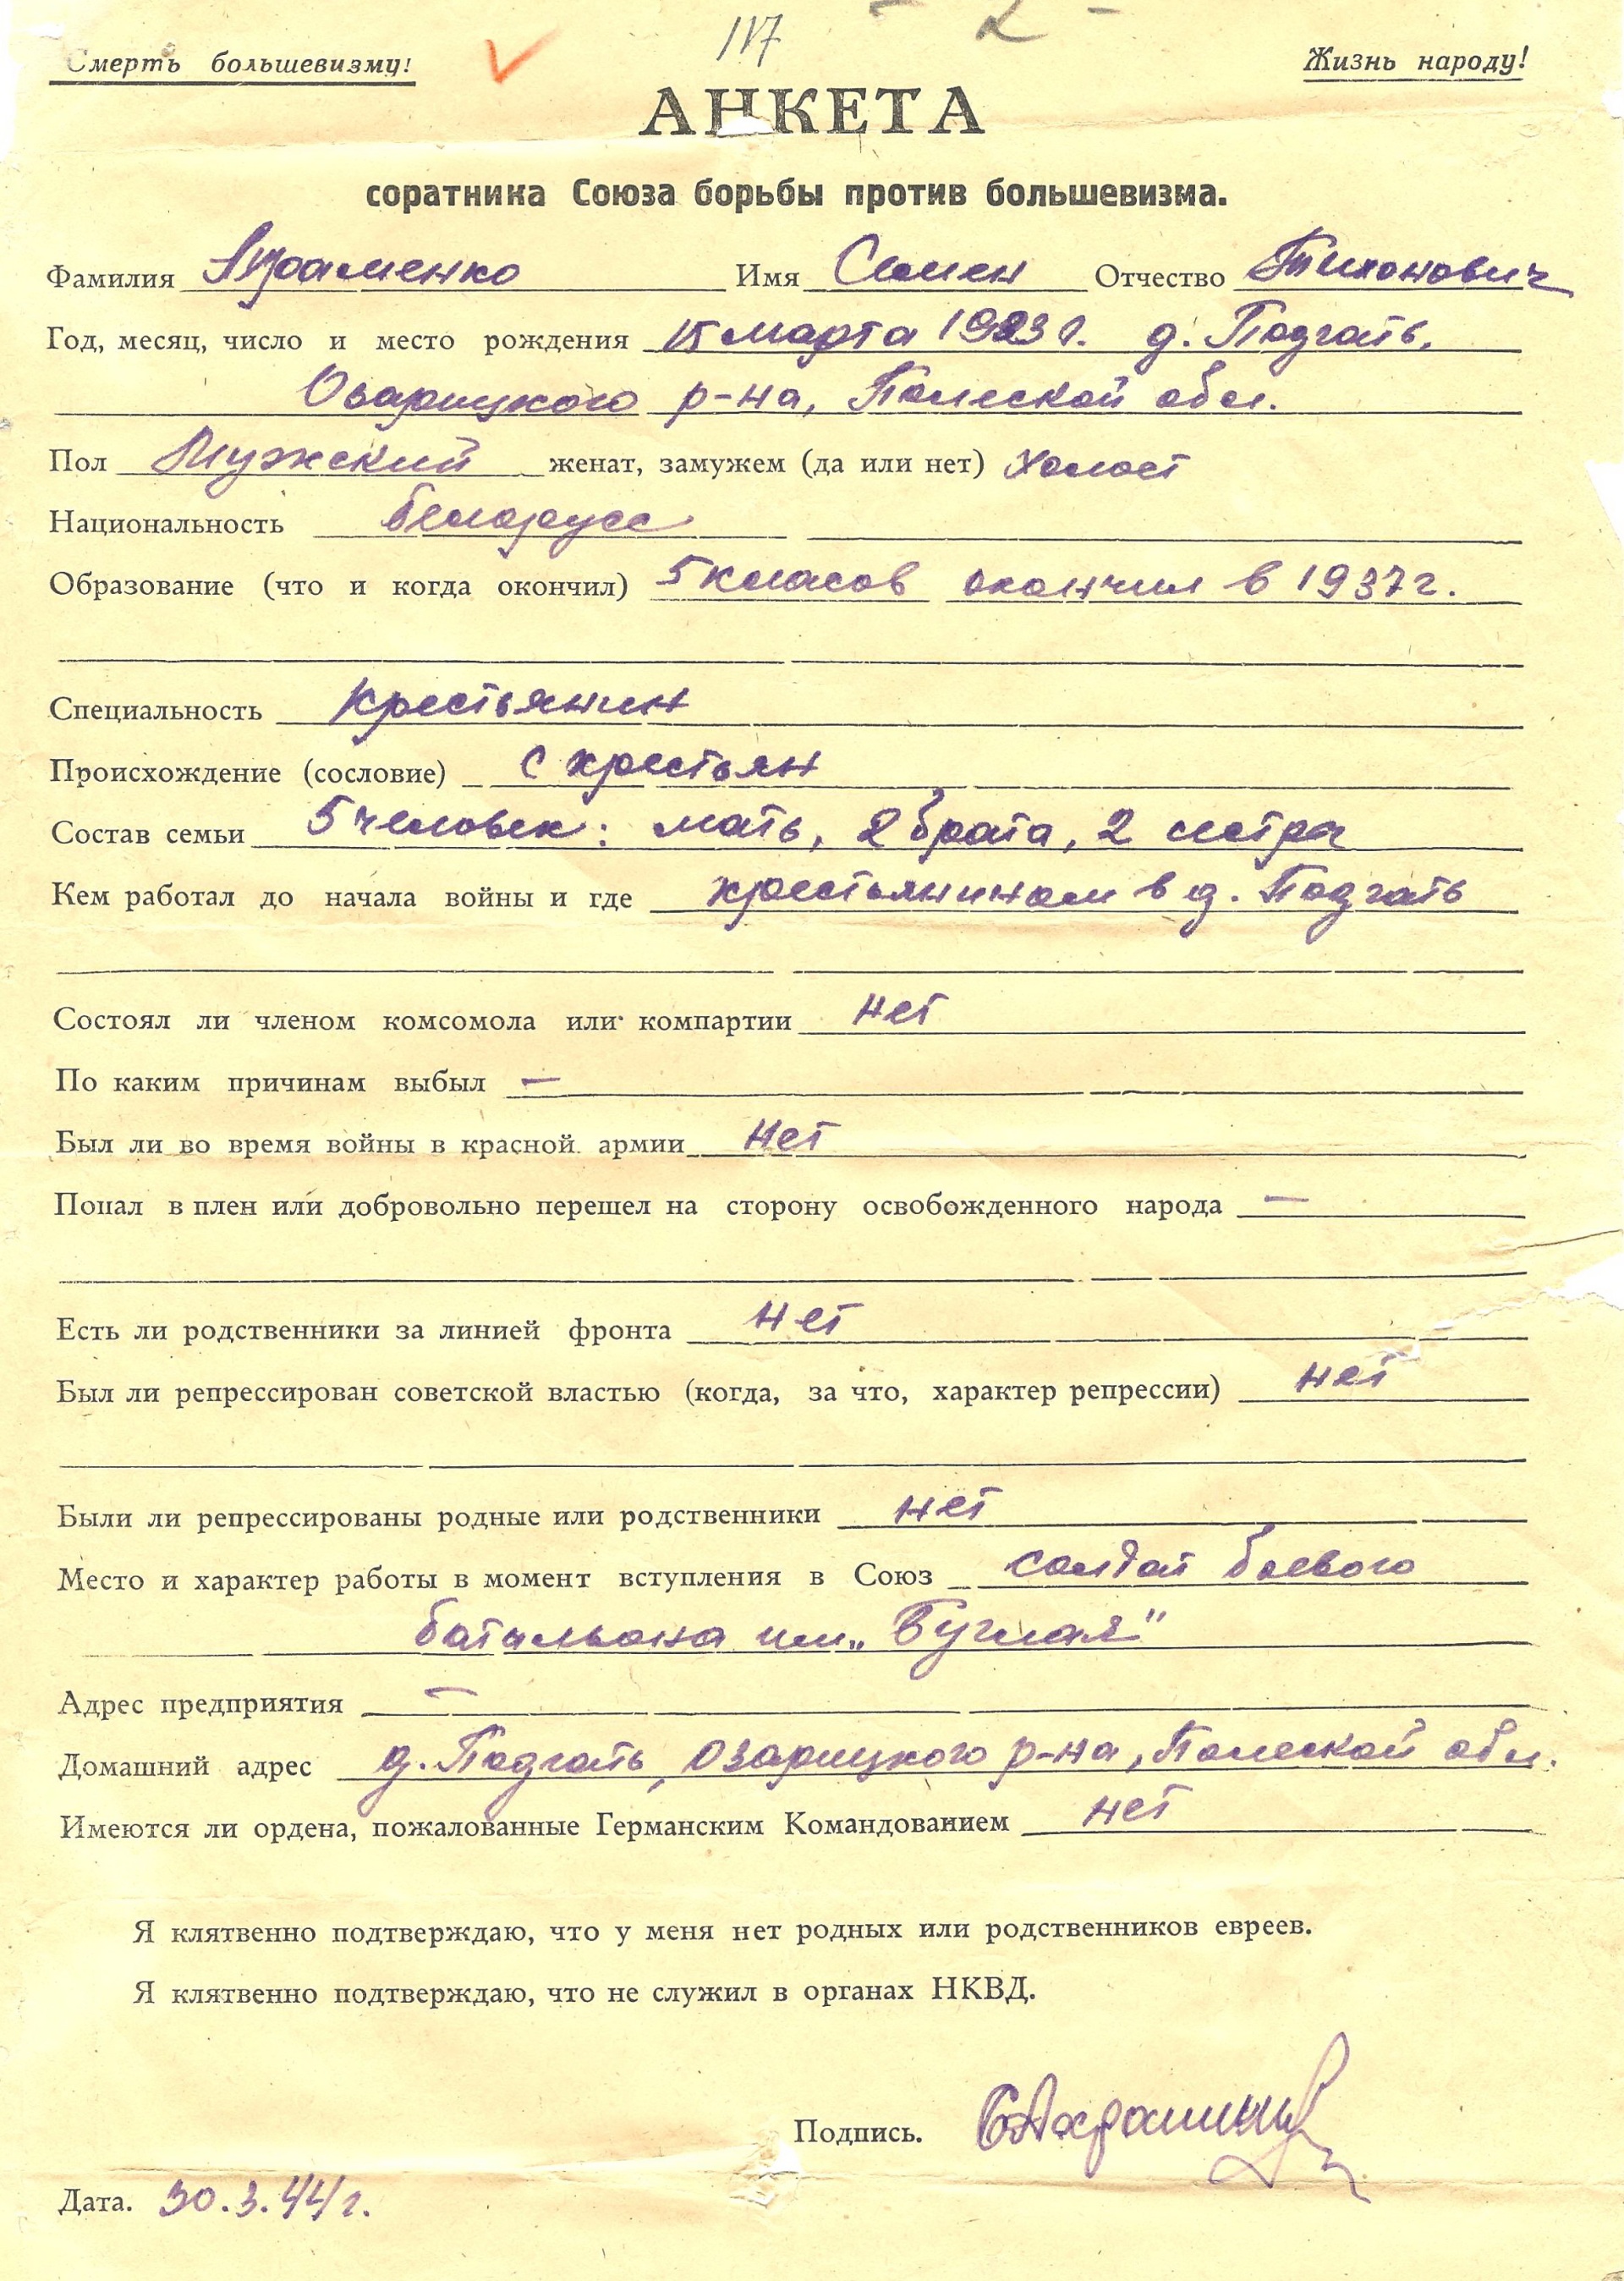 117 - 2 -
Смерть большевизму! Жизнь народу!
АНКЕТА
соратника Союза борьбы против большевизма.
Фамилия Имя Семен Отчество Тихонович
Год, месяц, число и место рождения 15 марта 1923 г. д. Подгать,
Озарицкого р-на, Полеской обл.
Пол Мужский женат, замужем (да или нет) холост
Национальность белорусс
Образование (что и когда окончил) 5 класов окончил в 1937 г.
Специальность крестьянин
Происхождение (сословие) с крестьян
Состав семьи 5 человек: мать, 2 брата, 2 сестры
Кем работал до начала войны и где крестьянином в д. Подгать
Состоял ли членом комсомола или компартии нет
По каким причинам выбыл —
Был ли во время войны в красной армии нет
Попал в плен или добровольно перешел на сторону освобожденного народа —
Есть ли родственники за линией фронта нет
Был ли репрессирован советской властью (когда, за что, характер репрессии) нет
Были ли репрессированы родные или родственники нет
Место и характер работы в момент вступления в Союз солдат боевого
батальона им „Бугмая"
Адрес предприятия —
Домашний адрес д. Подгать, Озарицкого р-на, Полеской обл.
Имеются ли ордена, пожалованные Германским Командованием нет
Я клятвенно подтверждаю, что у меня нет родных или родственников евреев.
Я клятвенно подтверждаю, что не служил в органах НКВД.
Подпись.
Дата. 30.3.44 г.